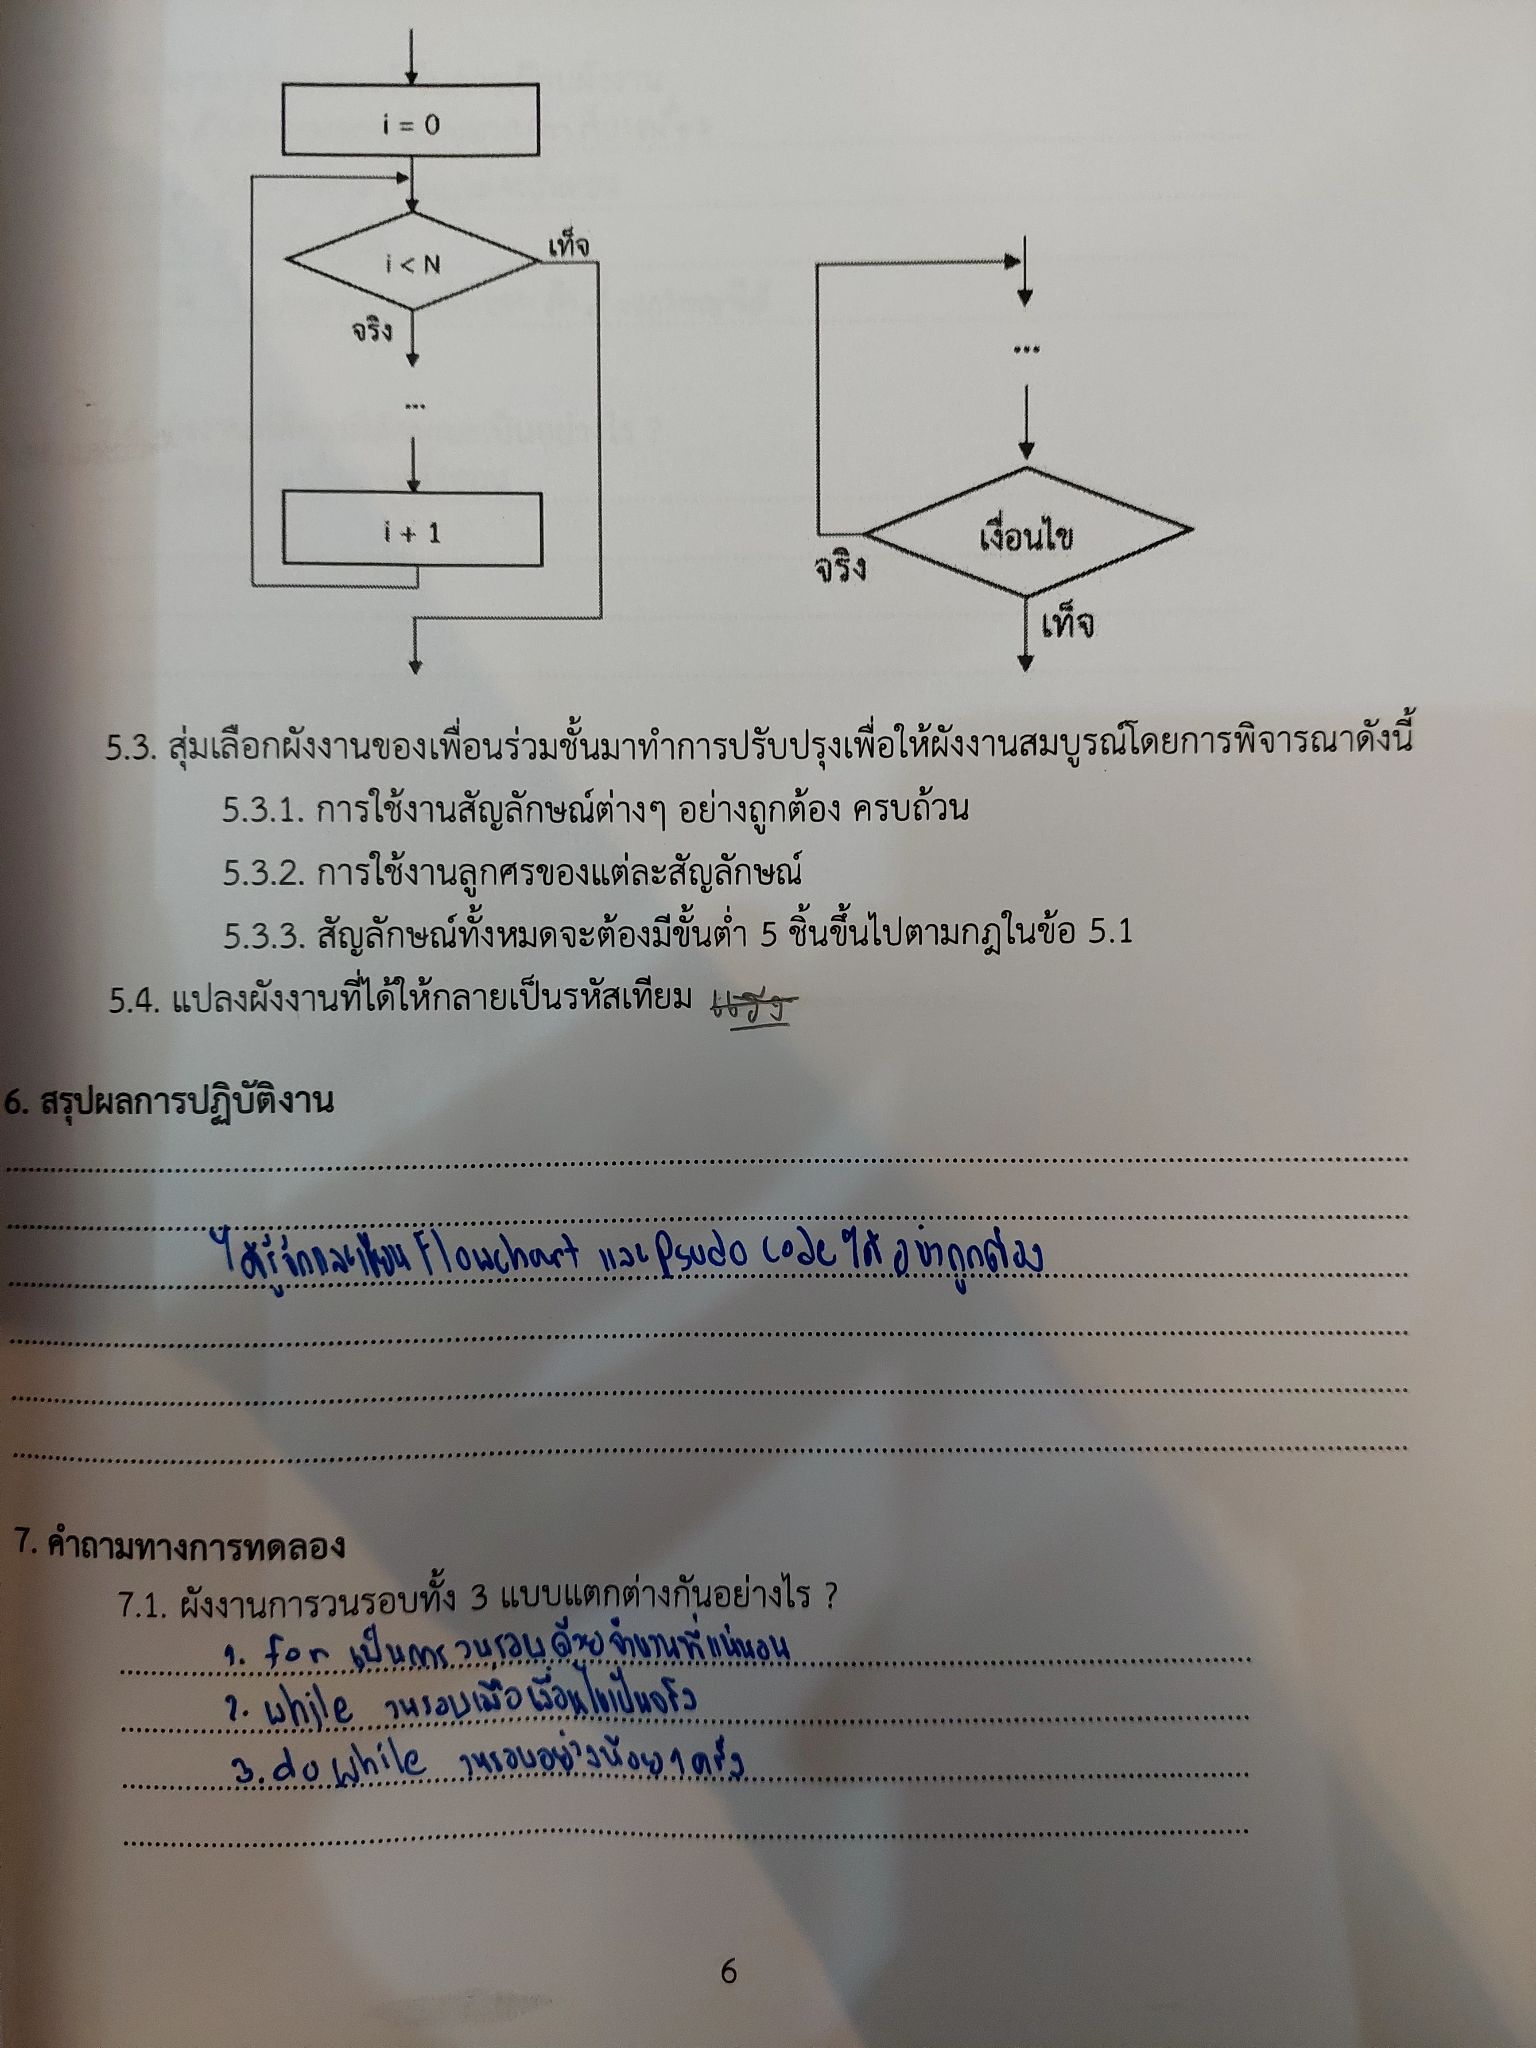 i = 0
i < N
เท็จ
จริง
...
i + 1
...
เงื่อนไข
จริง
เท็จ
5.3. สุ่มเลือกผังงานของเพื่อนร่วมชั้นมาทำการปรับปรุงเพื่อให้ผังงานสมบูรณ์โดยการพิจารณาดังนี้
5.3.1. การใช้งานสัญลักษณ์ต่างๆ อย่างถูกต้อง ครบถ้วน
5.3.2. การใช้งานลูกศรของแต่ละสัญลักษณ์
5.3.3. สัญลักษณ์ทั้งหมดจะต้องมีขั้นต่ำ 5 ชิ้นขึ้นไปตามกฎในข้อ 5.1
5.4. แปลงผังงานที่ได้ให้กลายเป็นรหัสเทียม
6. สรุปผลการปฏิบัติงาน
ได้รู้จักและเขียน Flowchart และ Psudo code ได้อย่าถูกต้อง
7. คำถามทางการทดลอง
7.1. ผังงานการวนรอบทั้ง 3 แบบแตกต่างกันอย่างไร ?
1. for เป็นการวนรอบด้วยจำนวนที่แน่นอน
2. while วนรอบเมื่อเงื่อนไขเป็นจริง
3. do while วนรอบอย่างน้อย 1 ครั้ง
6